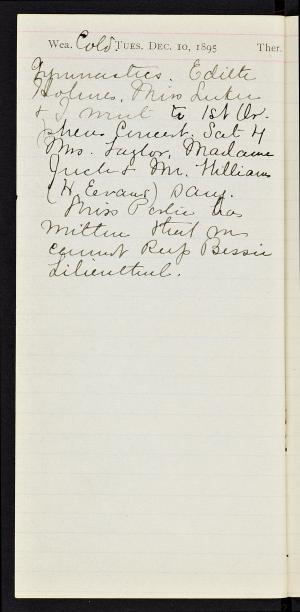 Wea. Cold TUES. DEC. 10, 1895 Ther.
Gymnastics. Edith
Holmes, Miss
& I went to 1st Or-
pheus Concert. Sat 4
Mrs. Taylor, Madame
& Mr. Williams
(H. Eevans) Sang.
Miss has
written that we
cannot keep Bessie
Lilienthal.